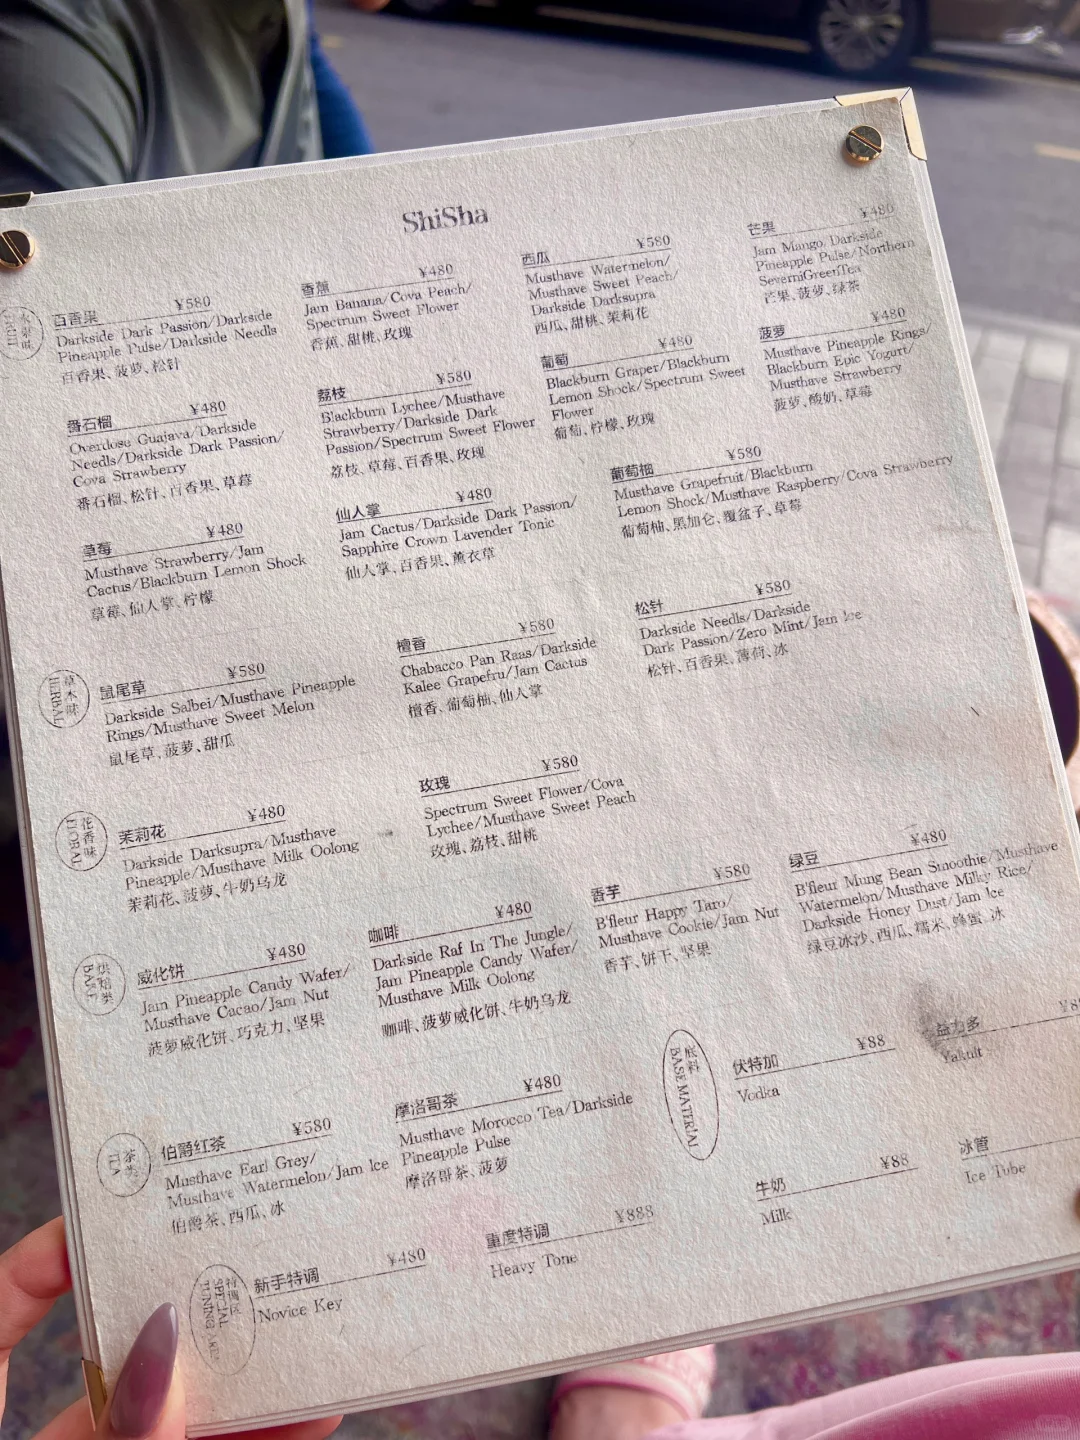 ShiSha
水果味
FRUIT
百香果 ¥580
Darkside Dark Passion/Darkside
Pineapple Pulse/Darkside Needls
百香果、菠萝、松针
香蕉 ¥480
Jam Banana/Cova Peach/
Spectrum Sweet Flower
香蕉、甜桃、玫瑰
西瓜 ¥580
Musthave Watermelon/
Musthave Sweet Peach/
Darkside Darksupra
西瓜、甜桃、茉莉花
芒果 ¥480
Jam Mango/Darkside
Pineapple Pulse/Northern
SeverniGreenTea
芒果、菠萝、绿茶
番石榴 ¥480
Overdose Guajava/Darkside
Needls/Darkside Dark Passion/
Cova Strawberry
番石榴、松针、百香果、草莓
荔枝 ¥580
Blackburn Lychee/Musthave
Strawberry/Darkside Dark
Passion/Spectrum Sweet Flower
荔枝、草莓、百香果、玫瑰
葡萄 ¥480
Blackburn Graper/Blackburn
Lemon Shock/Spectrum Sweet
Flower
葡萄、柠檬、玫瑰
菠萝 ¥480
Musthave Pineapple Rings/
Blackburn Epic Yogurt/
Musthave Strawberry
菠萝、酸奶、草莓
草莓 ¥480
Musthave Strawberry/Jam
Cactus/Blackburn Lemon Shock
草莓、仙人掌、柠檬
仙人掌 ¥480
Jam Cactus/Darkside Dark Passion/
Sapphire Crown Lavender Tonic
仙人掌、百香果、薰衣草
葡萄柚 ¥580
Musthave Grapefruit/Blackburn
Lemon Shock/Musthave Raspberry/Cova Strawberry
葡萄柚、黑加仑、覆盆子、草莓
草木味
HERBAL
鼠尾草 ¥580
Darkside Salbei/Musthave Pineapple
Rings/Musthave Sweet Melon
鼠尾草、菠萝、甜瓜
檀香 ¥580
Chabacco Pan Raas/Darkside
Kalee Grapefru/Jam Cactus
檀香、葡萄柚、仙人掌
松针 ¥580
Darkside Needls/Darkside
Dark Passion/Zero Mint/Jam Ice
松针、百香果、薄荷、冰
花香味
FLORAL
茉莉花 ¥480
Darkside Darksupra/Musthave
Pineapple/Musthave Milk Oolong
茉莉花、菠萝、牛奶乌龙
玫瑰 ¥580
Spectrum Sweet Flower/Cova
Lychee/Musthave Sweet Peach
玫瑰、荔枝、甜桃
烘焙类
BAKE
威化饼 ¥480
Jam Pineapple Candy Wafer/
Musthave Cacao/Jam Nut
菠萝威化饼、巧克力、坚果
咖啡 ¥480
Darkside Raf In The Jungle/
Jam Pineapple Candy Wafer/
Musthave Milk Oolong
咖啡、菠萝威化饼、牛奶乌龙
香芋 ¥580
B'fleur Happy Taro/
Musthave Cookie/Jam Nut
香芋、饼干、坚果
绿豆 ¥480
B'fleur Mung Bean Smoothie/Musthave
Watermelon/Musthave Milky Rice/
Darkside Honey Dust/Jam Ice
绿豆冰沙、西瓜、糯米、蜂蜜、冰
茶类
TEA
伯爵红茶 ¥580
Musthave Earl Grey/
Musthave Watermelon/Jam Ice
伯爵茶、西瓜、冰
摩洛哥茶 ¥480
Musthave Morocco Tea/Darkside
Pineapple Pulse
摩洛哥茶、菠萝
底料
BASE MATERIAL
伏特加 ¥88
Vodka
益力多
Yakult
牛奶 ¥88
Milk
冰管
Ice Tube
特调区
SPECIAL
TUNING AREA
新手特调 ¥480
Novice Key
重度特调 ¥888
Heavy Tone